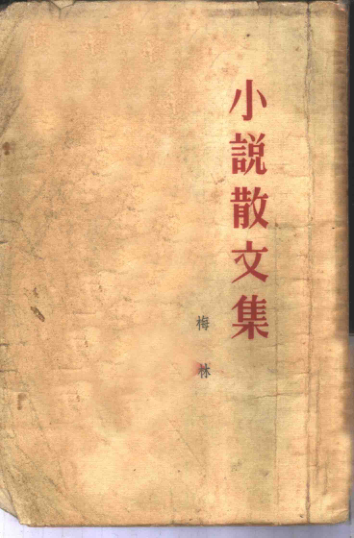 小説散文集
梅林